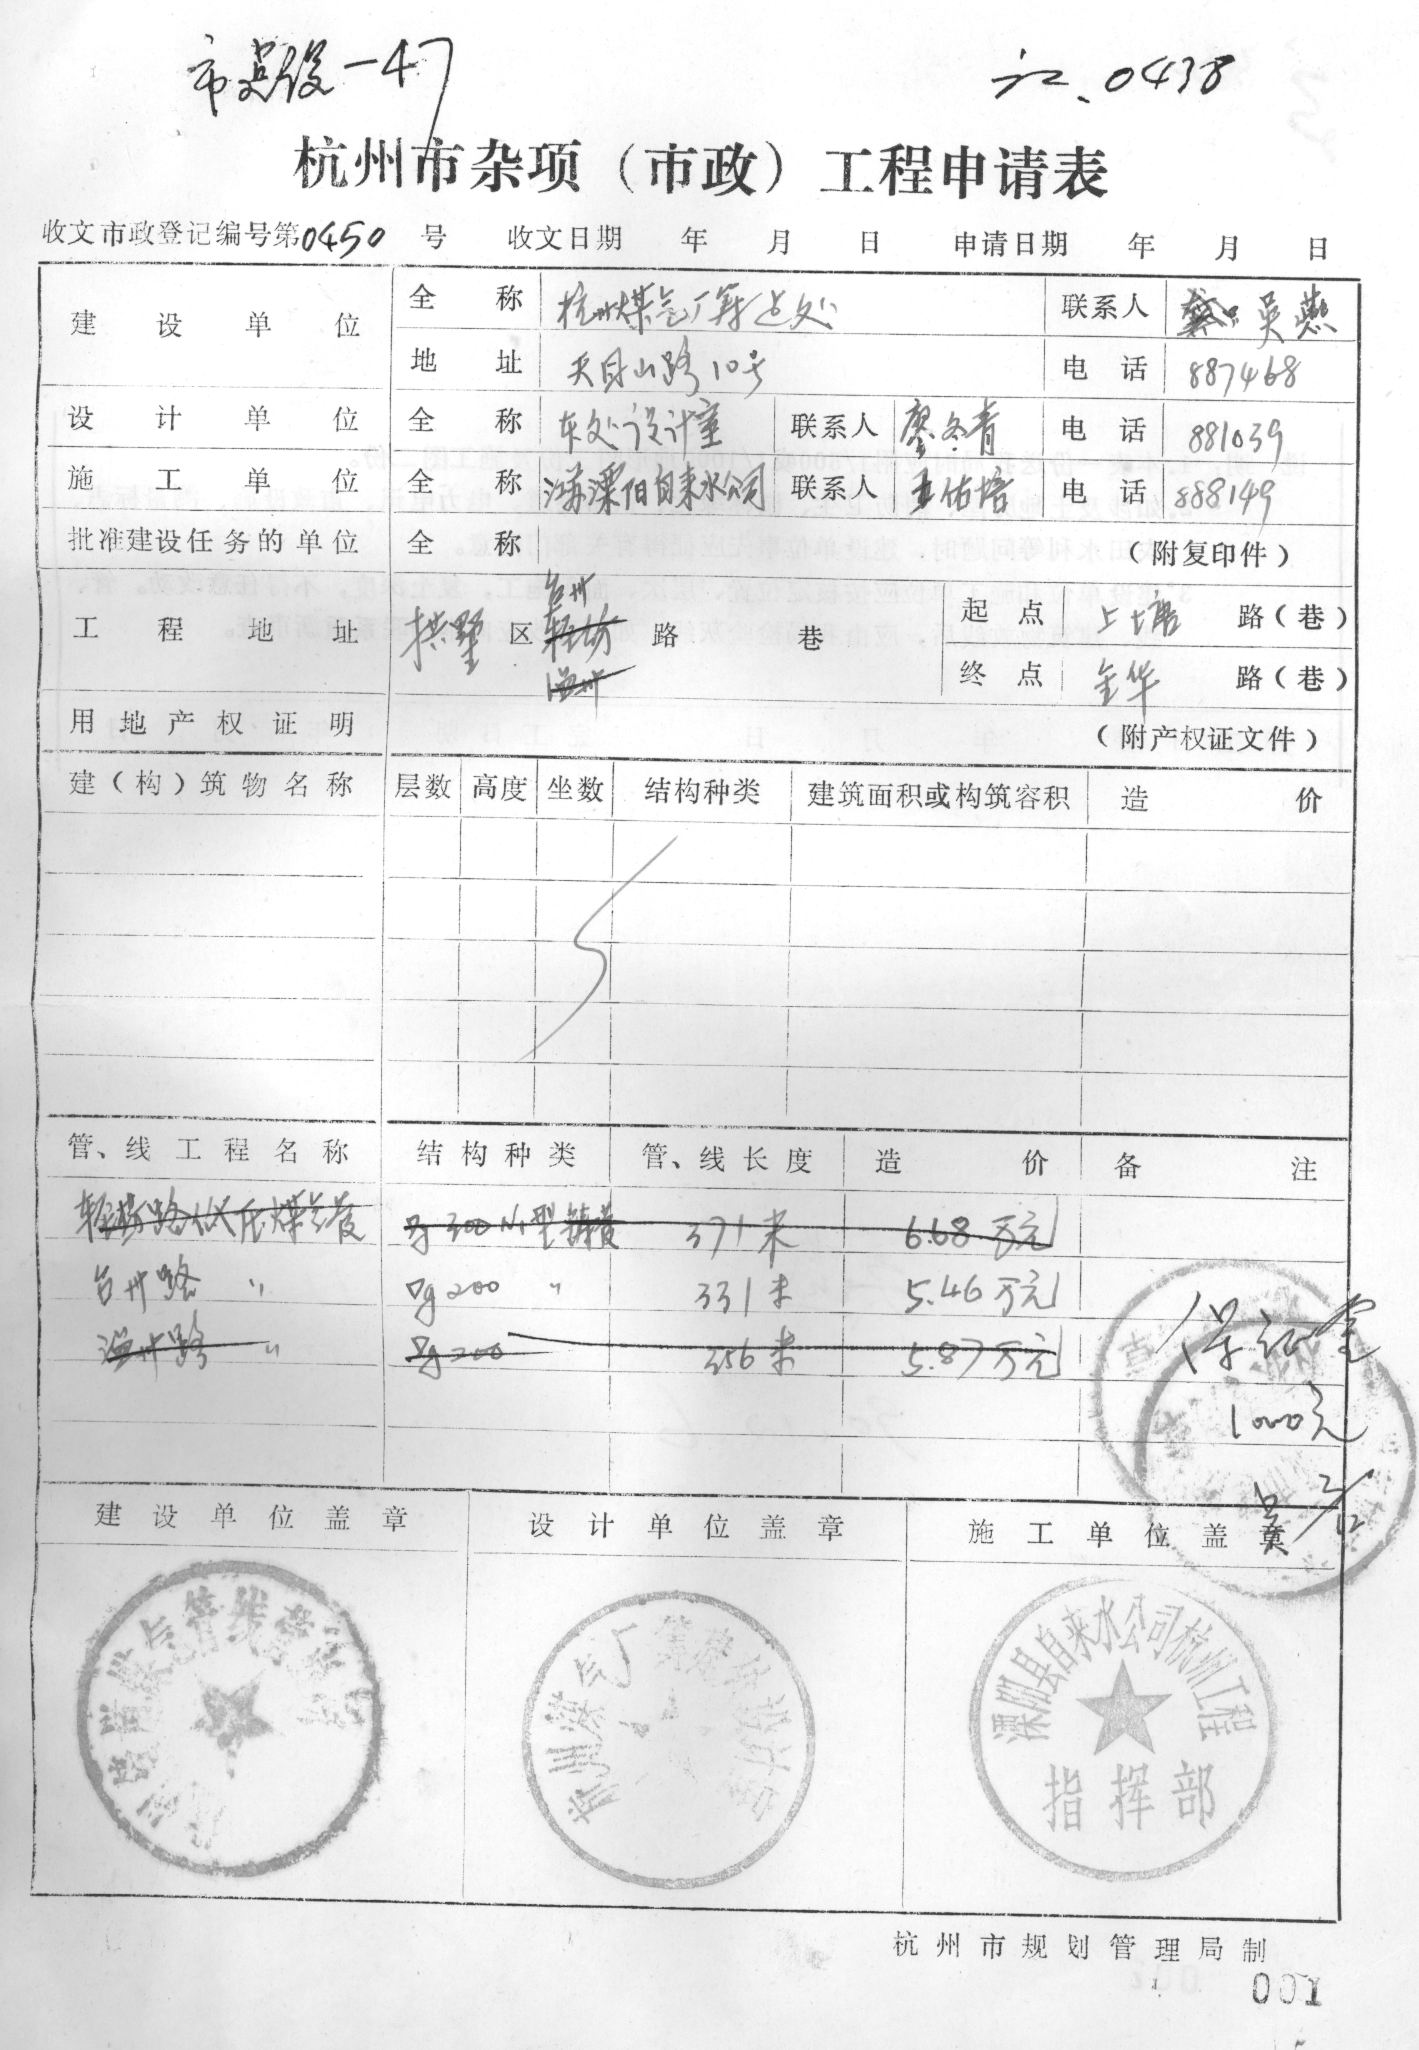 市 设-47
江.0438
杭州市杂项（市政）工程申请表
收文市政登记编号第0450号 收文日期 年 月 日 申请日期 年 月 日
建设单位 全称 杭州煤气厂筹建处 联系人 吴燕
地址 天目山路10号 电话 887468
设计单位 全称 本处设计室 联系人 廖冬青 电话 881039
施工单位 全称 江苏溧阳自来水公司 联系人 王佑培 电话 888149
批准建设任务的单位 全称 （附复印件）
工程地址 拱墅区 台州 轻纺 温州 路 巷 起点 上塘 路（巷）
终点 金华 路（巷）
用地产权证明 （附产权证文件）
建（构）筑物名称 层数 高度 坐数 结构种类 建筑面积或构筑容积 造价
管、线工程名称 结构种类 管、线长度 造价 备注
轻纺路低压煤气管 Dg300 N1型铸管 371米 6.68万元
台州路 〃 Dg200 〃 331米 5.46万元
温州路 〃 Dg200 356米 5.87万元
保证金
1000元
建设单位盖章 设计单位盖章 施工单位盖章
杭州煤气厂筹建处设计室
溧阳县自来水公司杭州工程
指挥部
杭州市规划管理局制
001